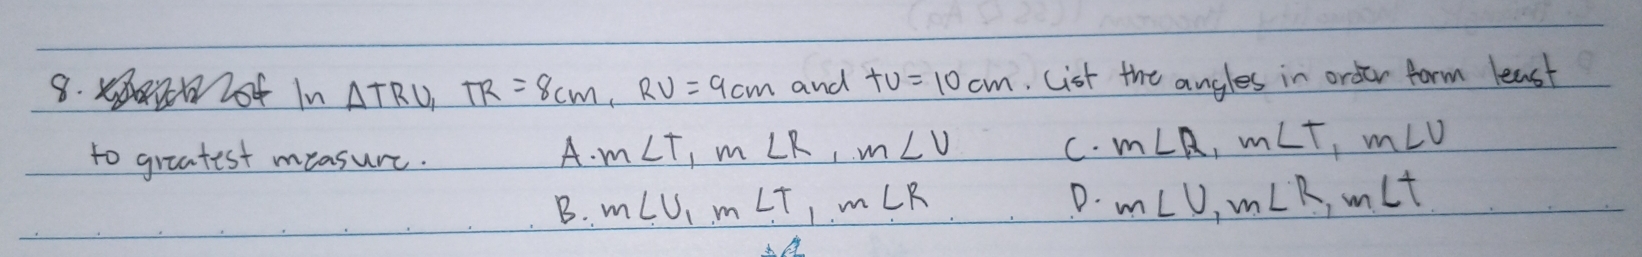 8. In ΔTRU, TR = 8cm, RU = 9cm and tU = 10cm. List the angles in order form least
to greatest measure. A. m∠T, m∠R, m∠U C. m∠R, m∠T, m∠U
B. m∠U, m∠T, m∠R D. m∠U, m∠R, m∠t